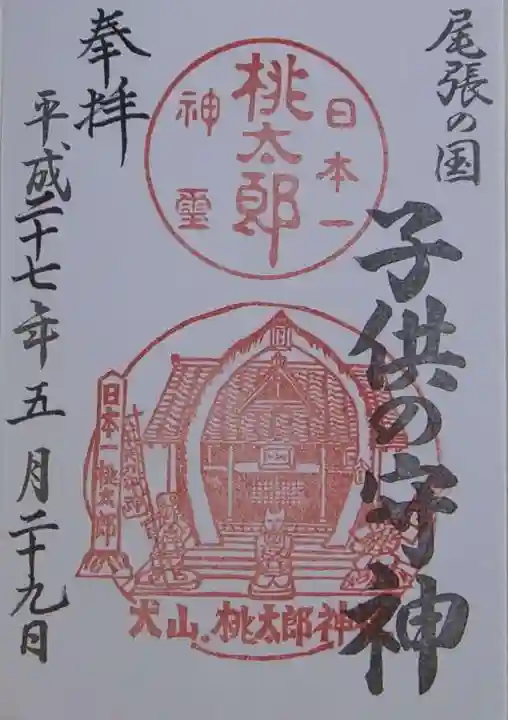 尾張の国
子供の守神
日本一
桃太郎
神璽
日本一桃太郎
犬山・桃太郎神
奉拝
平成二十七年五月二十九日